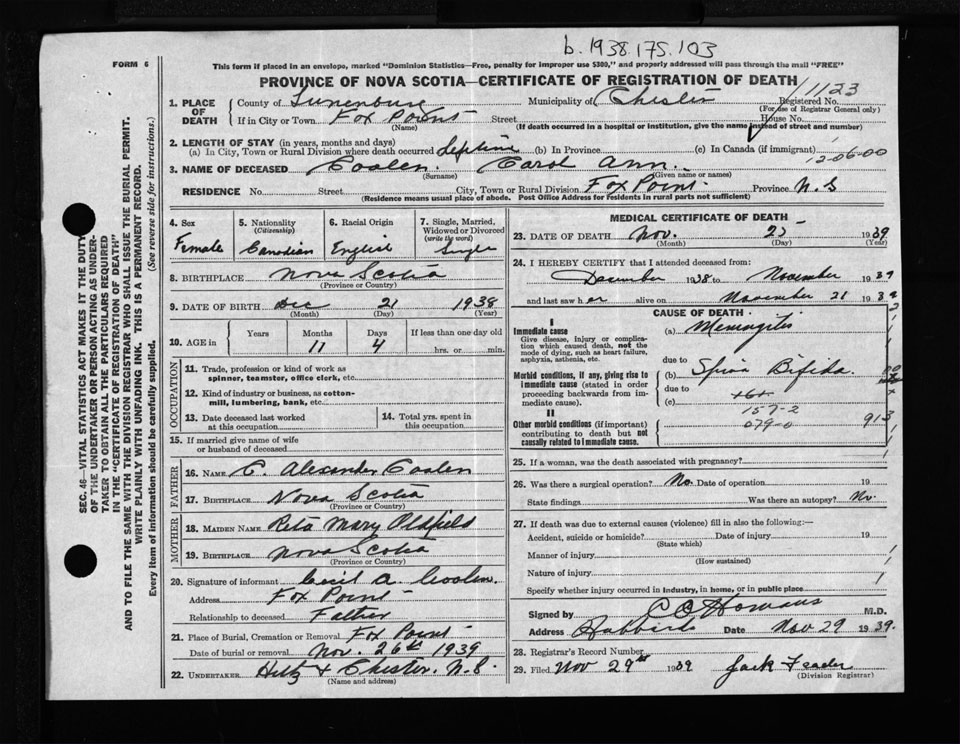 b.1938.175.103
FORM 6
This form if placed in an envelope, marked "Dominion Statistics—Free, penalty for improper use $300," and properly addressed will pass through the mail "FREE"
PROVINCE OF NOVA SCOTIA—CERTIFICATE OF REGISTRATION OF DEATH
1123
1. PLACE OF DEATH
County of Lunenburg Municipality of Chester Registered No.
(For use of Registrar General only)
If in City or Town Fox Point Street House No.
(Name) (If death occurred in a hospital or institution, give the name instead of street and number)
2. LENGTH OF STAY (in years, months and days)
(a) In City, Town or Rural Division where death occurred Lifetime (b) In Province (c) In Canada (if immigrant)
12-06-00
3. NAME OF DECEASED Coolen Carol Ann.
(Surname) (Given name or names)
RESIDENCE No. Street City, Town or Rural Division Fox Point Province N.S
(Residence means usual place of abode. Post Office Address for residents in rural parts not sufficient)
4. Sex
Female
5. Nationality
(Citizenship)
Canadian
6. Racial Origin
English
7. Single, Married, Widowed or Divorced
(write the word)
Single
8. BIRTHPLACE Nova Scotia
(Province or Country)
9. DATE OF BIRTH Dec 21 1938
(Month) (Day) (Year)
10. AGE in
Years Months Days If less than one day old
11 4 hrs. or min.
OCCUPATION
11. Trade, profession or kind of work as spinner, teamster, office clerk, etc.
12. Kind of industry or business, as cotton-mill, lumbering, bank, etc.
13. Date deceased last worked at this occupation
14. Total yrs. spent in this occupation
15. If married give name of wife or husband of deceased
FATHER
16. NAME C. Alexander Coolen
17. BIRTHPLACE Nova Scotia
(Province or Country)
MOTHER
18. MAIDEN NAME Rita Mary Oldfield
19. BIRTHPLACE Nova Scotia
(Province or Country)
20. Signature of informant Cecil A. Coolen.
Address Fox Point
Relationship to deceased Father
21. Place of Burial, Cremation or Removal Fox Point
Date of burial or removal Nov. 26th 1939
22. UNDERTAKER Hiltz & Chester. N.S.
(Name and address)
MEDICAL CERTIFICATE OF DEATH
23. DATE OF DEATH Nov. 25 1939
(Month) (Day) (Year)
24. I HEREBY CERTIFY that I attended deceased from:
December 1938 to November 1939
and last saw her alive on November 21 1939
CAUSE OF DEATH
I
Immediate cause
Give disease, injury or complication which caused death, not the mode of dying, such as heart failure, asphyxia, asthenia, etc.
(a) Meningitis
due to
Morbid conditions, if any, giving rise to immediate cause (stated in order proceeding backwards from immediate cause).
(b) Spina Bifida.
due to
(c) 161
157-2
II
Other morbid conditions (if important) contributing to death but not causally related to immediate cause.
079-0
913
25. If a woman, was the death associated with pregnancy?
26. Was there a surgical operation? No. Date of operation 19
State findings Was there an autopsy? No
27. If death was due to external causes (violence) fill in also the following:—
Accident, suicide or homicide? Date of injury 19
(State which)
Manner of injury
(How sustained)
Nature of injury
Specify whether injury occurred in industry, in home, or in public place
Signed by M.D.
Address Hubbards Date Nov 29 1939.
28. Registrar's Record Number
29. Filed Nov 29th 1939 Jack Feader
(Division Registrar)
SEC. 46—VITAL STATISTICS ACT MAKES IT THE DUTY OF THE UNDERTAKER OR PERSON ACTING AS UNDERTAKER TO OBTAIN ALL THE PARTICULARS REQUIRED IN THE "CERTIFICATE OF REGISTRATION OF DEATH"
AND TO FILE THE SAME WITH THE DIVISION REGISTRAR WHO SHALL ISSUE THE BURIAL PERMIT.
WRITE PLAINLY WITH UNFADING INK. THIS IS A PERMANENT RECORD.
Every item of information should be carefully supplied. (See reverse side for instructions.)